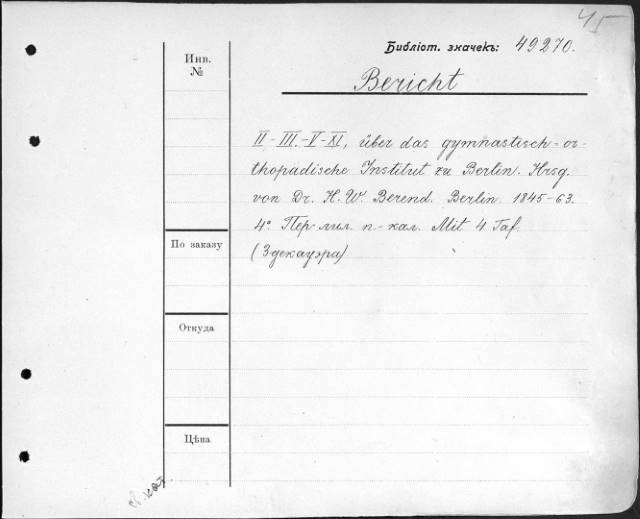 45
Библіот. значекъ: 49270.
Bericht
Инв.
№
II - III. - V - XI, über das gymnastisch-or-
thopädische Institut zu Berlin. Hrsg.
von Dr. H. W. Berend. Berlin. 1845-63.
4° Пер лил. п.-кал. Mit 4 Taf.
(Здекауэра)
По заказу
Откуда
Цѣна